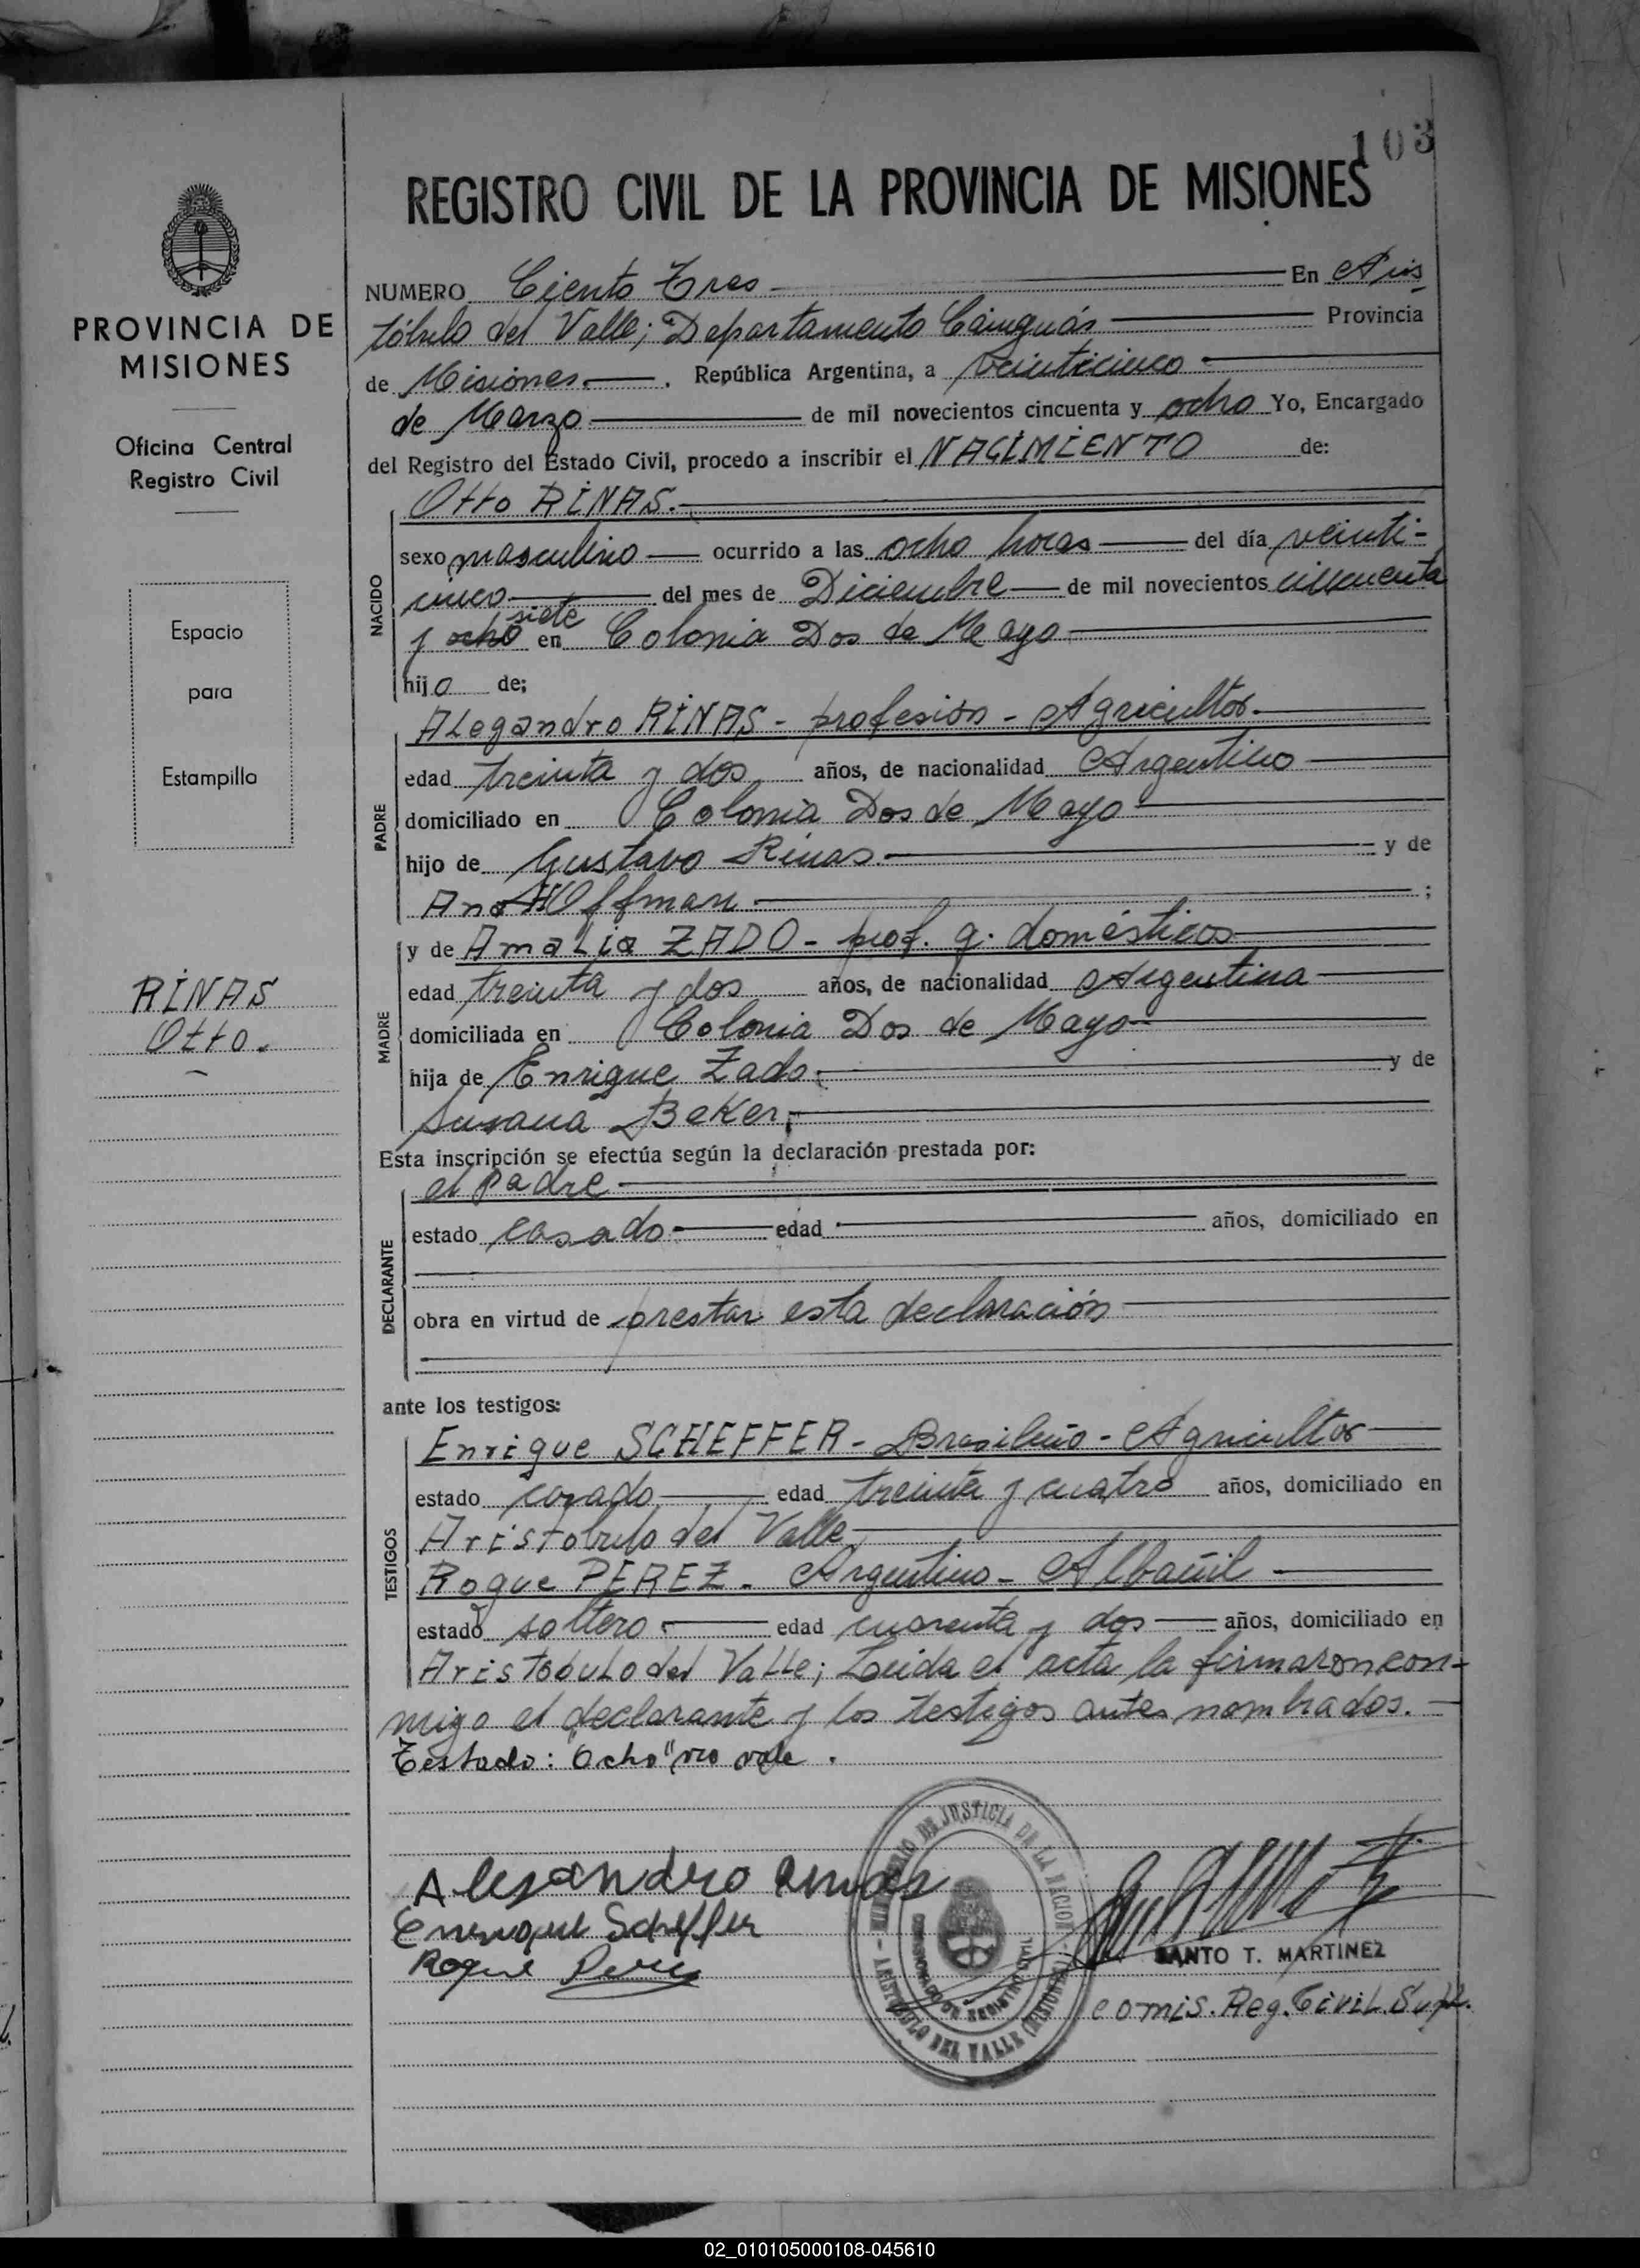 103
REGISTRO CIVIL DE LA PROVINCIA DE MISIONES
PROVINCIA DE
MISIONES
Oficina Central
Registro Civil
Espacio
para
Estampilla
RINAS
Otto.
NUMERO Ciento Tres En Aris
tóbulo del Valle; Departamento Cainguás Provincia
de Misiones. República Argentina, a veinticinco
de Marzo de mil novecientos cincuenta y ocho Yo, Encargado
del Registro del Estado Civil, procedo a inscribir el NACIMIENTO de:
NACIDO
Otto RINAS.
sexo masculino ocurrido a las ocho horas del día veinti-
cinco del mes de Diciembre de mil novecientos cincuenta
siete
y ocho en Colonia Dos de Mayo
hijo de;
PADRE
Alegandro RINAS - profesión - Agricultor.
edad treinta y dos años, de nacionalidad Argentino
domiciliado en Colonia Dos de Mayo
hijo de Gustavo Rinas. y de
Ana Hoffman ;
MADRE
y de Amalia ZADO - prof. q. domésticos
edad treinta y dos años, de nacionalidad Argentina
domiciliada en Colonia Dos de Mayo
hija de Enrique Zado y de
Susana Beker;
Esta inscripción se efectúa según la declaración prestada por:
DECLARANTE
el Padre
estado casado edad años, domiciliado en
obra en virtud de prestar esta declaración
ante los testigos:
TESTIGOS
Enrique SCHEFFER - Brasileño - Agricultor
estado casado edad treinta y cuatro años, domiciliado en
Aristobulo del Valle
Roque PEREZ - Argentino - Albañil
estado soltero edad cuarenta y dos años, domiciliado en
Aristobulo del Valle; Leida el acta la firmaron con-
migo el declarante y los testigos antes nombrados.
Testado: "Ocho" no vale.
Alejandro Rinas
Enrique Scheffer
Roque Perez
MINISTERIO DE JUSTICIA DE LA NACION
ARISTOBULO DEL VALLE (MISIONES)
SANTO T. MARTINEZ
comis. Reg. Civil Supl.
02_010105000108-045610